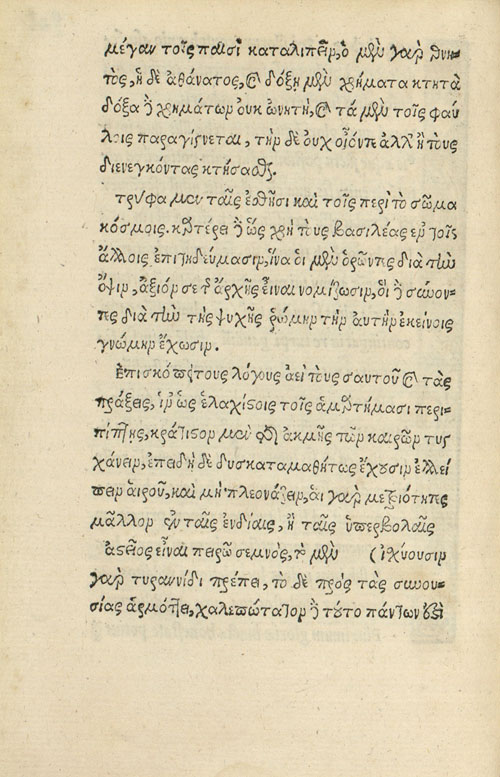 μέγαν τοῖς παισὶ καταλιπεῖν, ὁ μὲν γὰρ θνη-
τὸς, ἡ δὲ ἀθάνατος, καὶ δόξῃ μὲν χρήματα κτητὰ
δόξα δὲ χρημάτων οὐκ ὠνητὴ, καὶ τὰ μὲν τοῖς φαύ
λοις παραγίγνεται, τὴν δὲ οὐχ οἷόντε ἀλλ' ἢ τοὺς
διενεγκόντας κτήσασθαι.
τρύφα μὲν ταῖς ἐσθῆσι καὶ τοῖς περὶ τὸ σῶμα
κόσμοις. καρτέρει δὲ ὡς χρὴ τοὺς βασιλέας ἐν τοῖς
ἄλλοις ἐπιτηδεύμασιν, ἵνα οἱ μὲν ὁρῶντες διὰ τὴν
ὄψιν, ἄξιόν σε τῆς ἀρχῆς εἶναι νομίζωσιν, οἱ δὲ συνόν-
τες διὰ τὴν τῆς ψυχῆς ῥώμην τὴν αὐτὴν ἐκείνοις
γνώμην ἔχωσιν.
Ἐπισκόπει τοὺς λόγους ἀεὶ τοὺς σαυτοῦ καὶ τὰς
πράξεις, ἵν' ὡς ἐλαχίστοις τοῖς ἁμαρτήμασι περι-
πίπτῃς, κράτιστον μὲν τῆς ἀκμῆς τῶν καιρῶν τυγ
χάνειν, ἐπειδὴ δὲ δυσκαταμαθήτως ἔχουσιν ἐλλεί
πειν αἱροῦ, καὶ μὴ πλεονάζειν, αἱ γὰρ μετριότητες
μᾶλλον ἐν ταῖς ἐνδείαις, ἢ ταῖς ὑπερβολαῖς
ἀστεῖος εἶναι πειρῶ σεμνὸς, τὸ μὲν (ἰχύουσιν
γὰρ τυραννίδι πρέπει, τὸ δὲ πρὸς τὰς συνου-
σίας ἁρμόττει, χαλεπώτατον δὲ τοῦτο πάντων ἐστὶ